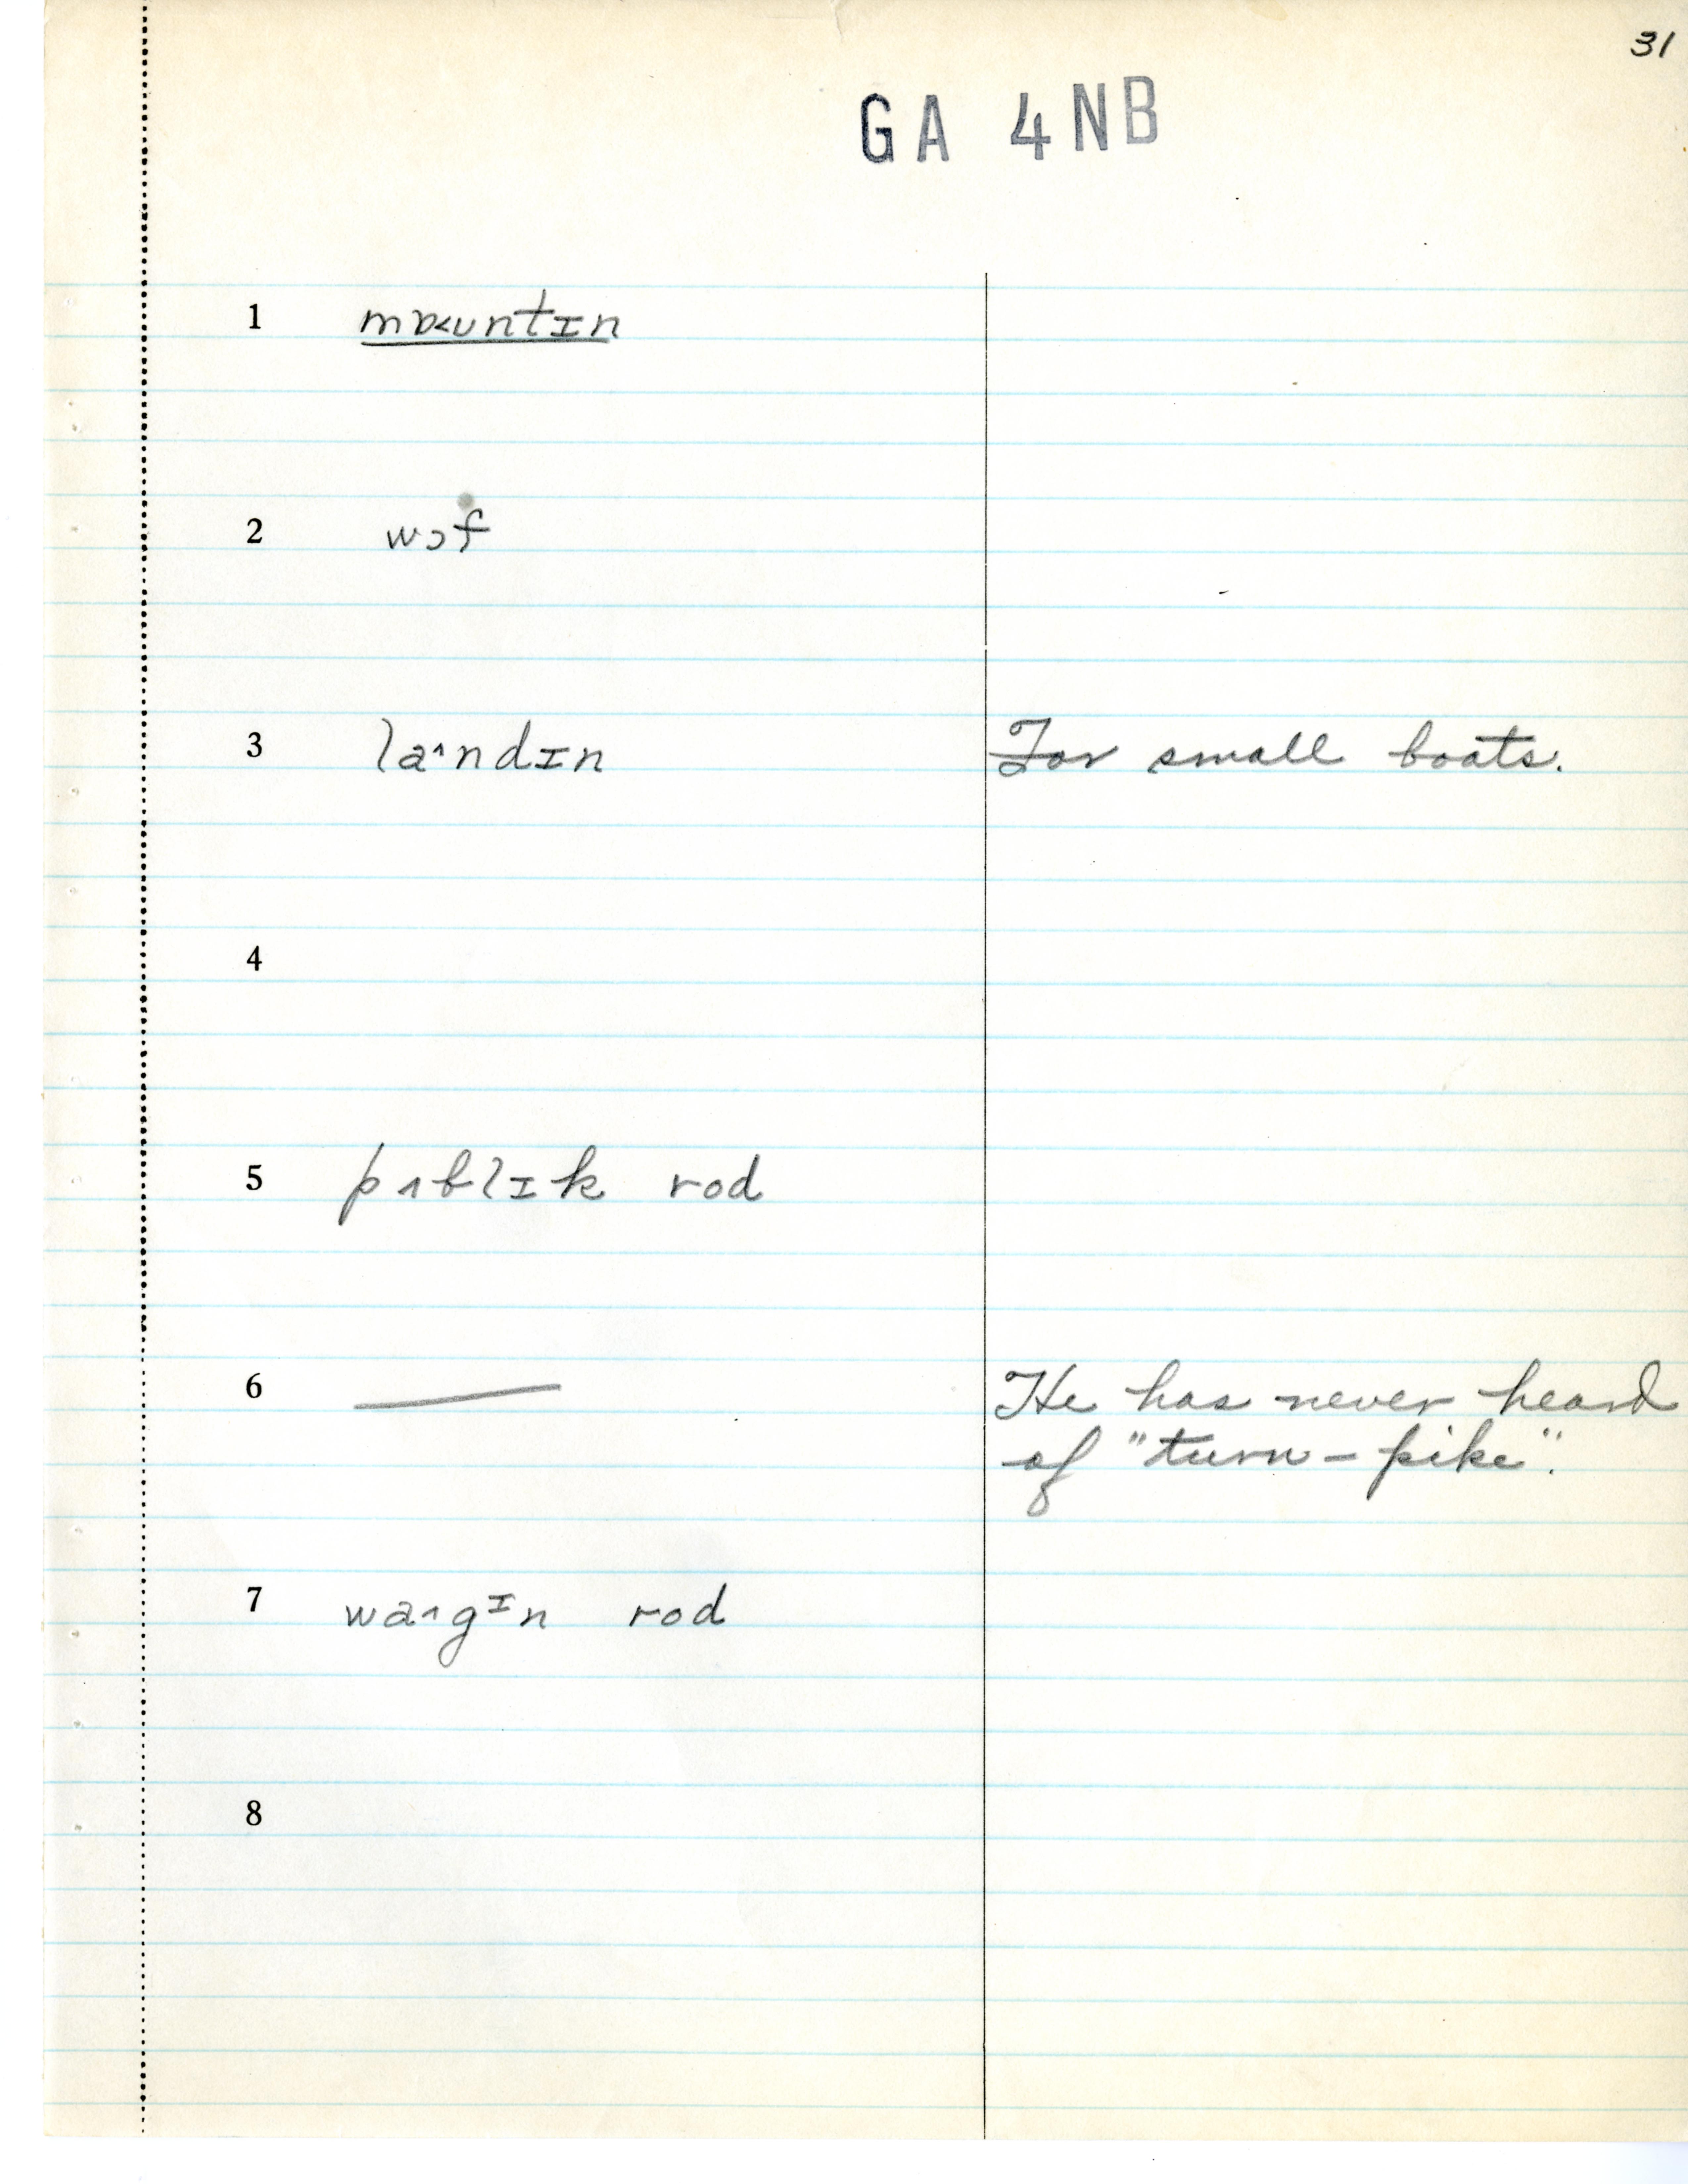 31
GA 4NB
1 mɒ<ʊntɪn
2 wɔf
3 la^ndɪn For small boats.
4
5 pʌblɪk rod
6 — He has never heard
of "turn-pike".
7 wa^gɪn rod
8